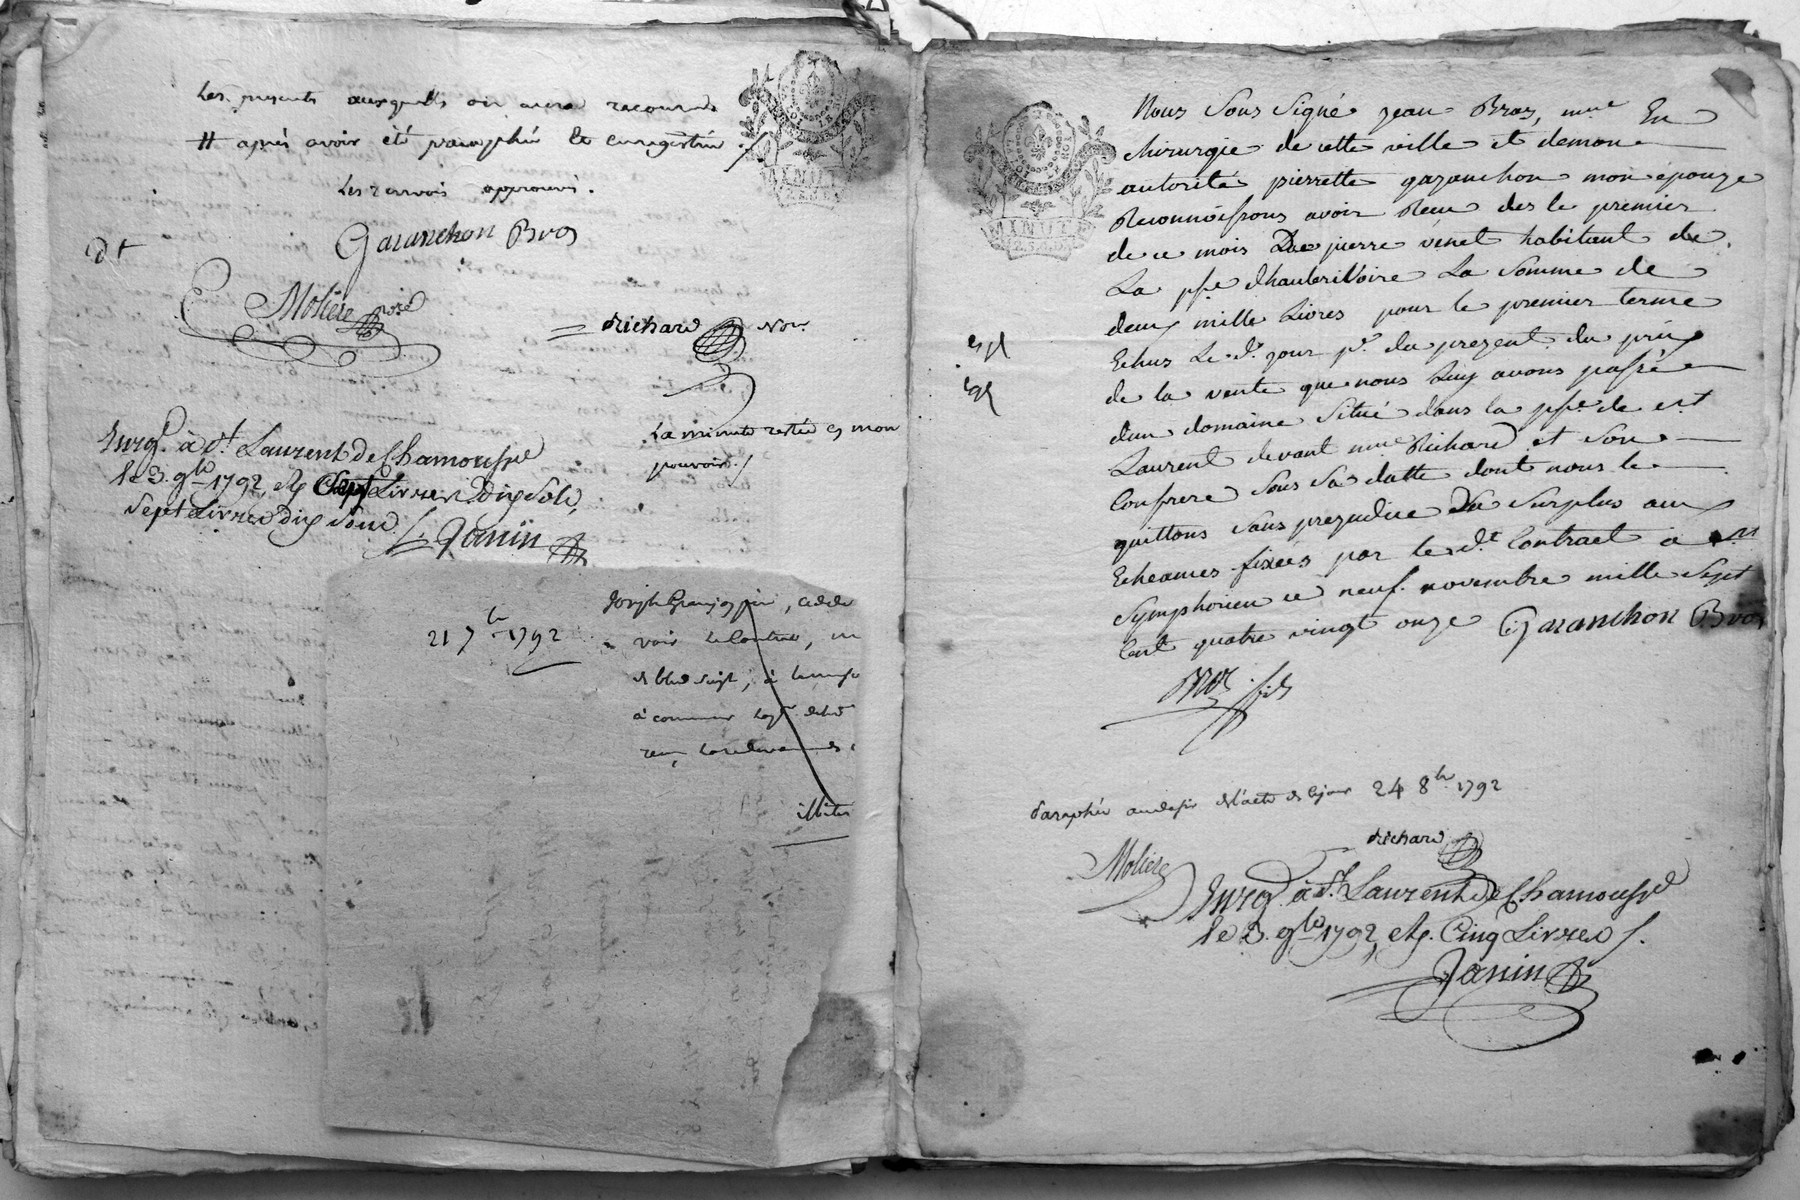 Les presents auxquels on aura recours
# apres avoir été paraphé et enregistré ./.
Les renvois approuvés.
Garanchon Bros
dt
Moliere
Richard Nore
La minute restée en mon
pouvoir ./
Enrg. à St. Laurent de Chamousset
le 3. 9bre 1792, R. Sept Livres dix Sols,
Sept Livres dix Sous
Janin
21 7bre 1792
Joseph
voir le Contrat, un
à commencer
illites
MINUTE
MINUTE
Nous Sous Signé jean Bros, me En
chirurgie de cette ville et de mon
autorité pierrette garanchon mon epouze
Reconnoissons avoir Receu des le premier
de ce mois De pierre venet habitant de
La psse d'hauterivoire La Somme de
deux mille Livres pour le premier terme
Echus Le dt jour pr. du prezent du prix
de la vente que nous Luy avons passée
dun domaine Situé dans la psse de st
Laurent devant me Richard et Son
Confrere Sous Sa datte dont nous le
quittons Sans prejudice Du Surplus aux
Echeances fixées par le dt Contract a st
Symphorien ce neuf novembre mille Sept
Cent quatre vingt onze Garanchon Bros
Bros fils
Paraphée au desir de l'acte de ce jour 24 8bre 1792
Richard
Moliere
Enrg. à St. Laurent de Chamousset
le 3. 9bre 1792, R. Cinq Livres /.
Janin